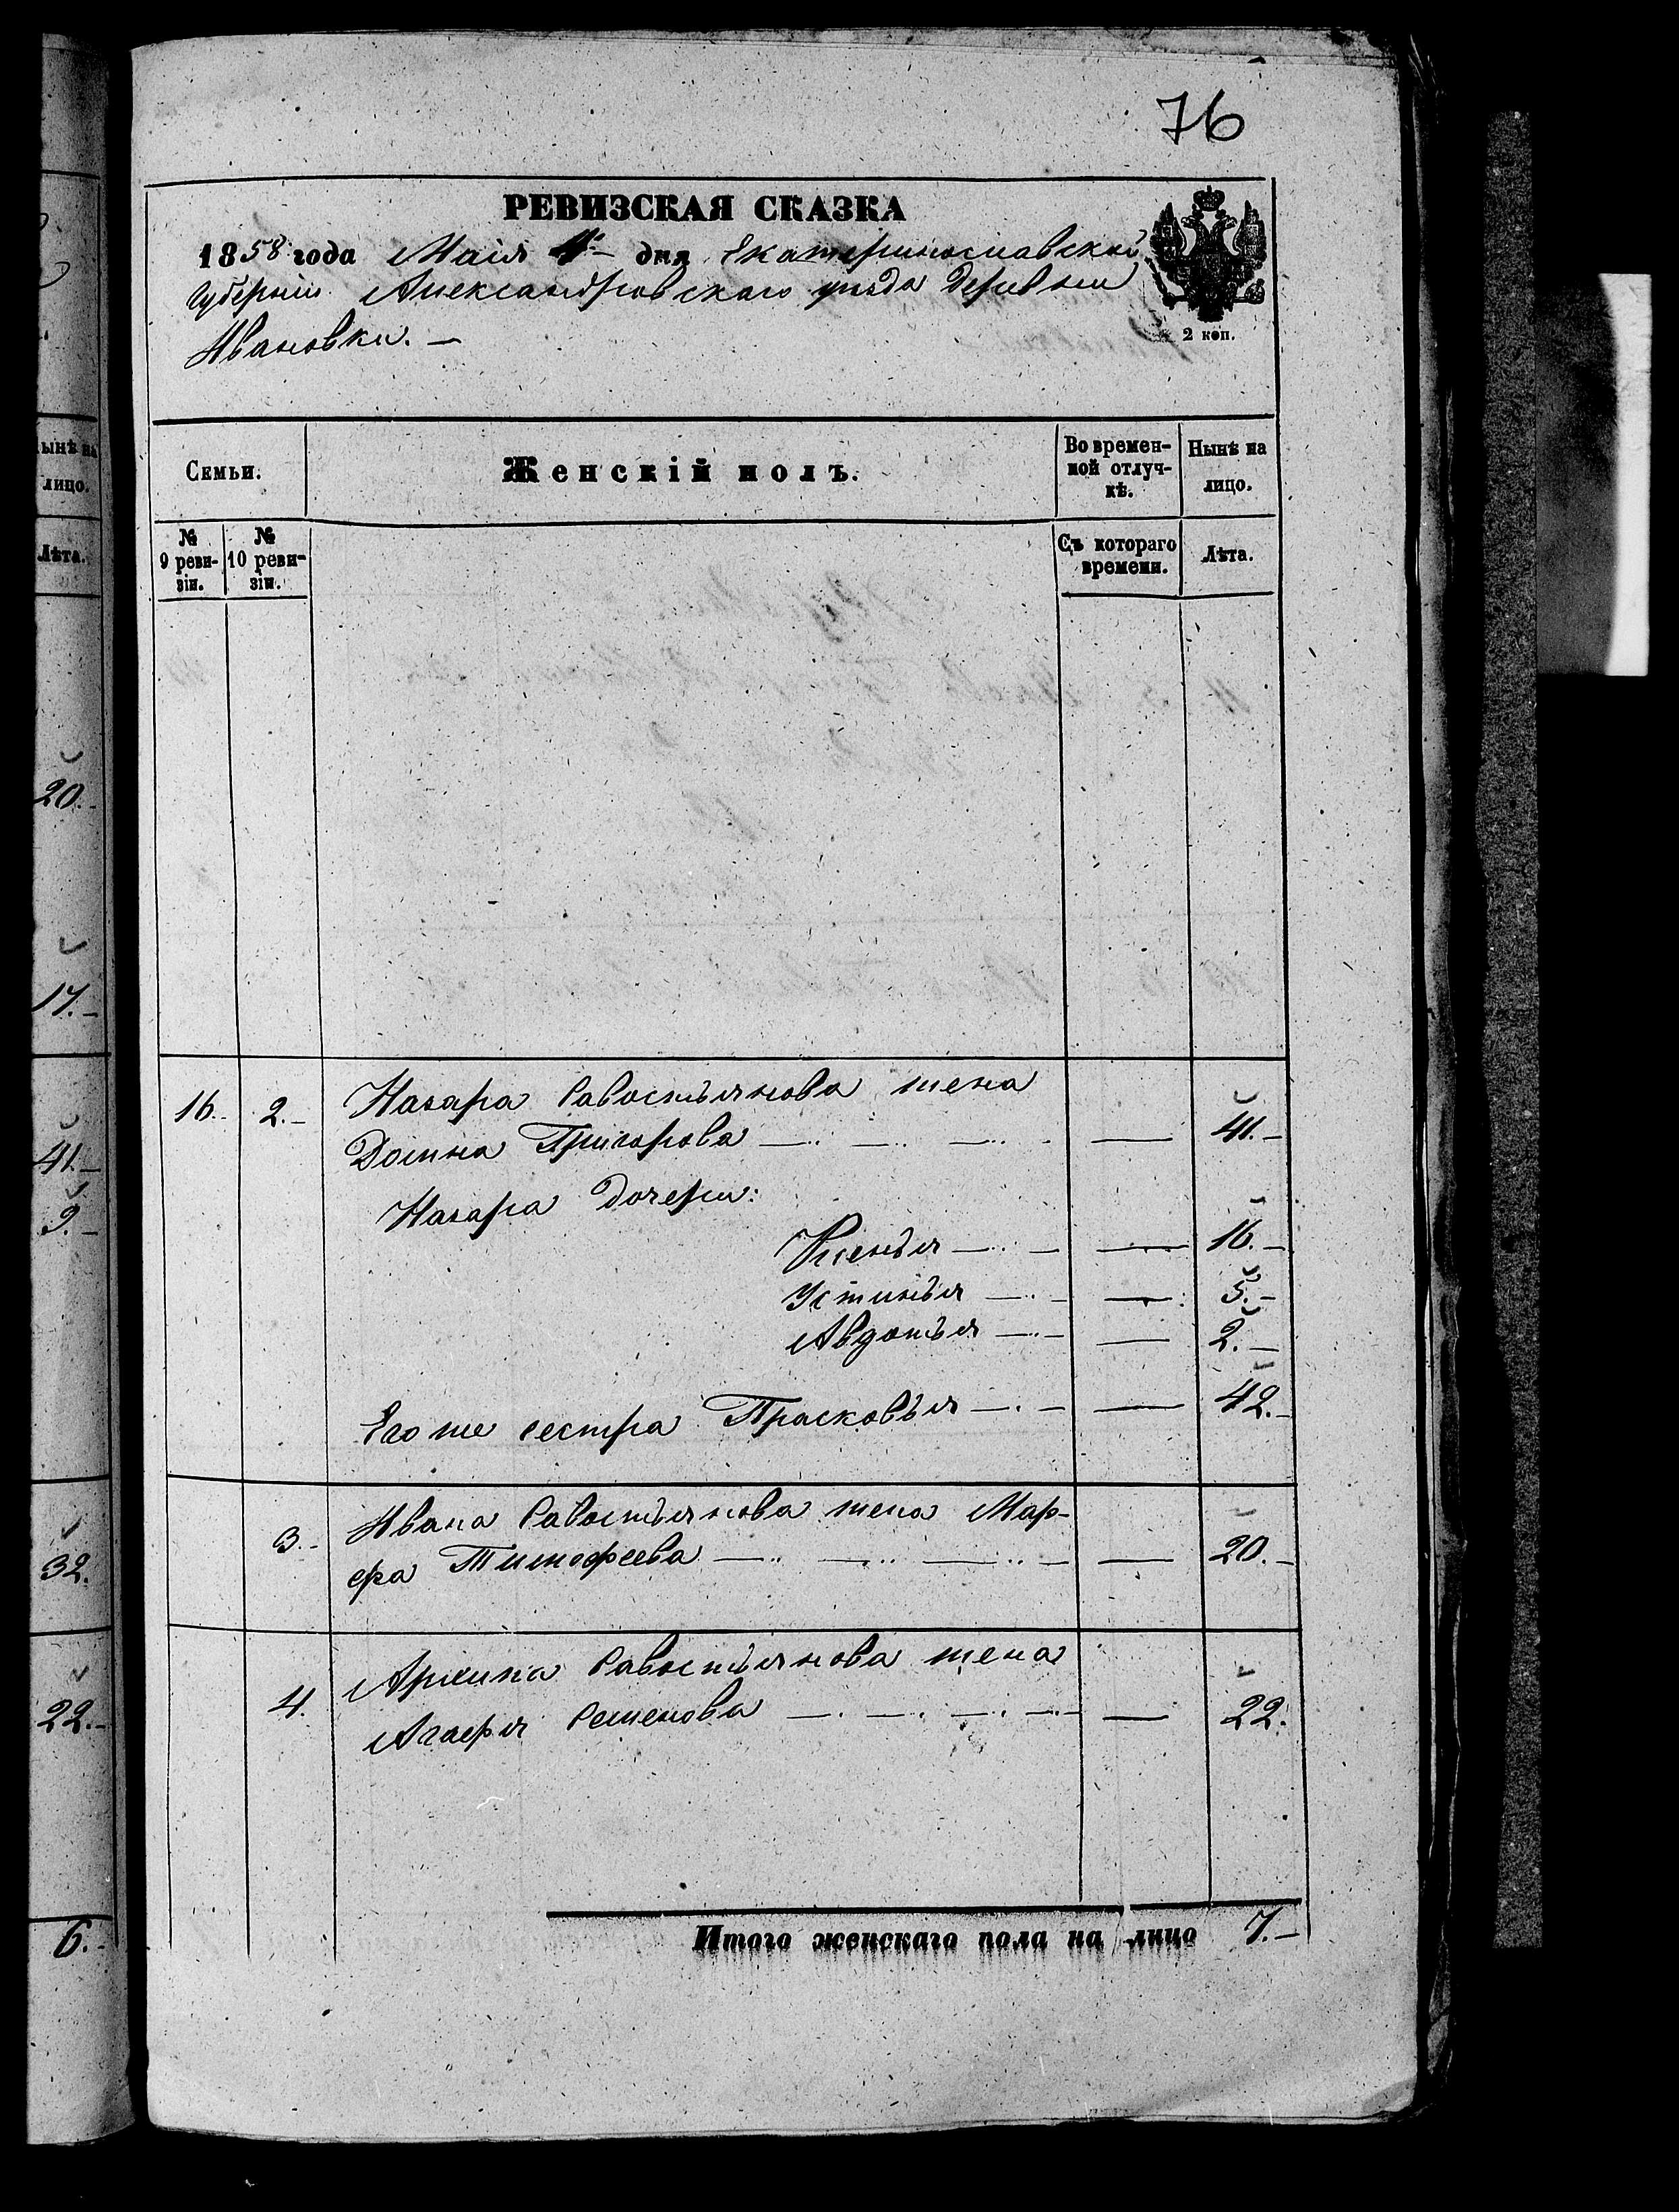 76
РЕВИЗСКАЯ СКАЗКА
1858 года Маія 1 дня Екатеринославской
Губерніи Александровскаго уѣзда Деревни
Ивановки. —
2 коп.
Семьи.
Женскій полъ.
Во времен-
ной отлуч-
кѣ.
Нынѣ на
лицо.
№
9 реви-
зіи.
№
10 реви-
зіи.
Съ котораго
времени.
Лѣта.
16. 2. Назара Савостьянова жена
Домна Григорова — 41.
Назара дочери:
Ксенья — 16.
Устинья — 5.
Авдотья — 2.
Его же сестра Прасковья — 42.
3. Ивана Савостьянова жена Мар-
фа Тимофеева — 20.
4. Архипа Савостьянова жена
Агафья Семенова — 22.
Итого женскаго пола на лицо 7.
ынѣ на
лицо.
Лѣта.
20.
17.
41.
9.
32.
22.
6.